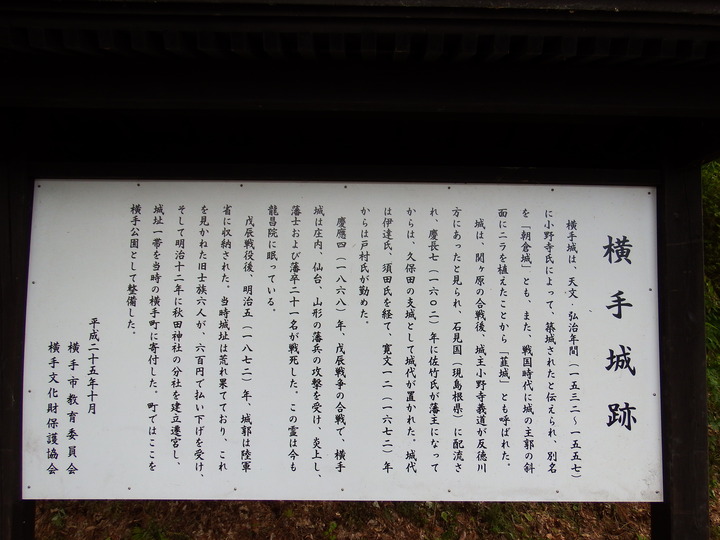 横手城跡
横手城は、天文、弘治年間（一五三二～一五五七）
に小野寺氏によって、築城されたと伝えられ、別名
を「朝倉城」とも、また、戦国時代に城の主郭の斜
面にニラを植えたことから「韮城」とも呼ばれた。
城は、関ヶ原の合戦後、城主小野寺義道が反徳川
方にあったと見られ、石見国（現島根県）に配流さ
れ、慶長七（一六〇二）年に佐竹氏が藩主になって
からは、久保田の支城として城代が置かれた。城代
は伊達氏、須田氏を経て、寛文一二（一六七二）年
からは戸村氏が勤めた。
慶應四（一八六八）年、戊辰戦争の合戦で、横手
城は庄内、仙台、山形の藩兵の攻撃を受け、炎上し、
藩士および藩卒二十一名が戦死した。この霊は今も
龍昌院に眠っている。
戊辰戦役後、明治五（一八七二）年、城郭は陸軍
省に収納された。当時城址は荒れ果てており、これ
を見かねた旧士族六人が、六百円で払い下げを受け、
そして明治十二年に秋田神社の分社を建立遷宮し、
城址一帯を当時の横手町に寄付した。町ではここを
横手公園として整備した。
平成二十五年十月
横手市教育委員会
横手文化財保護協会